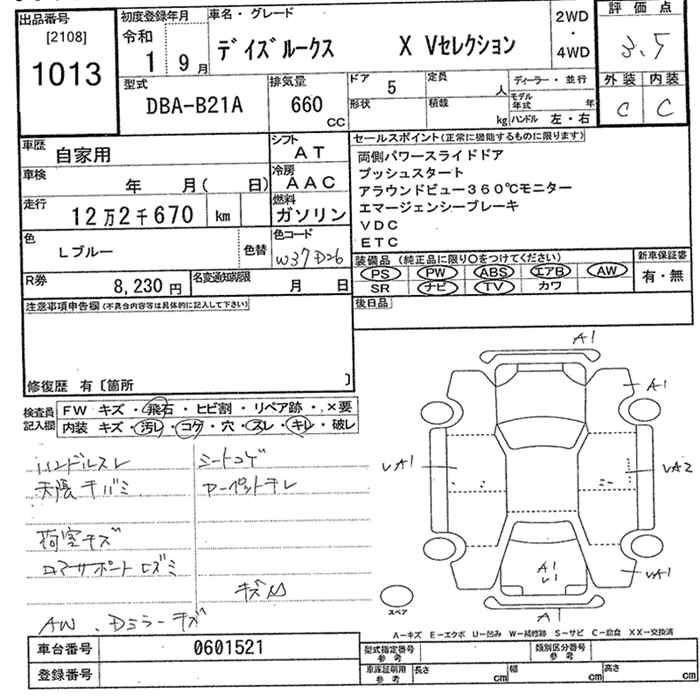 出品番号
[2108]
1013
初度登録年月
令和
1 9月
車名・グレード
デイズルークス X Vセレクション
2WD
・
4WD
評価点
3.5
外装 内装
C C
型式
DBA-B21A
排気量
660
CC
ドア 5
形状
定員 人
積載 kg
ディーラー・並行
モデル年式 年
ハンドル 左・右
車歴 自家用
シフト AT
車検 年 月( 日)
冷房 AAC
走行 12万2千670 km
燃料 ガソリン
色 Lブルー
色替
色コード W37D26
R券 8,230円
名変通知期限 月 日
セールスポイント(正常に機能するものに限ります)
両側パワースライドドア
プッシュスタート
アラウンドビュー360℃モニター
エマージェンシーブレーキ
VDC
ETC
装備品(純正品に限り○をつけてください)
新車保証書
PS PW ABS エアB AW
SR ナビ TV カワ
有・無
後日品
注意事項申告欄(不具合内容等は具体的に記入して下さい)
修復歴 有〔箇所 〕
検査員記入欄
FW キズ・飛石・ヒビ割・リペア跡・.×要
内装 キズ・汚レ・コゲ・穴・スレ・キレ・破レ
ハンドルスレ
シートコゲ
カーペットキレ
荷室キズ
キズ
AW、Dミラーキズ
A1
A1
UA1
UA2
A1
UA1
A1
スペア
A-キズ E-エクボ U-凹み W-補修跡 S-サビ C-腐食 XX-交換済
車台番号 0601521
登録番号
型式指定番号参考
類別区分番号参考
車庫証明用参考
長さ cm 幅 cm 高さ cm